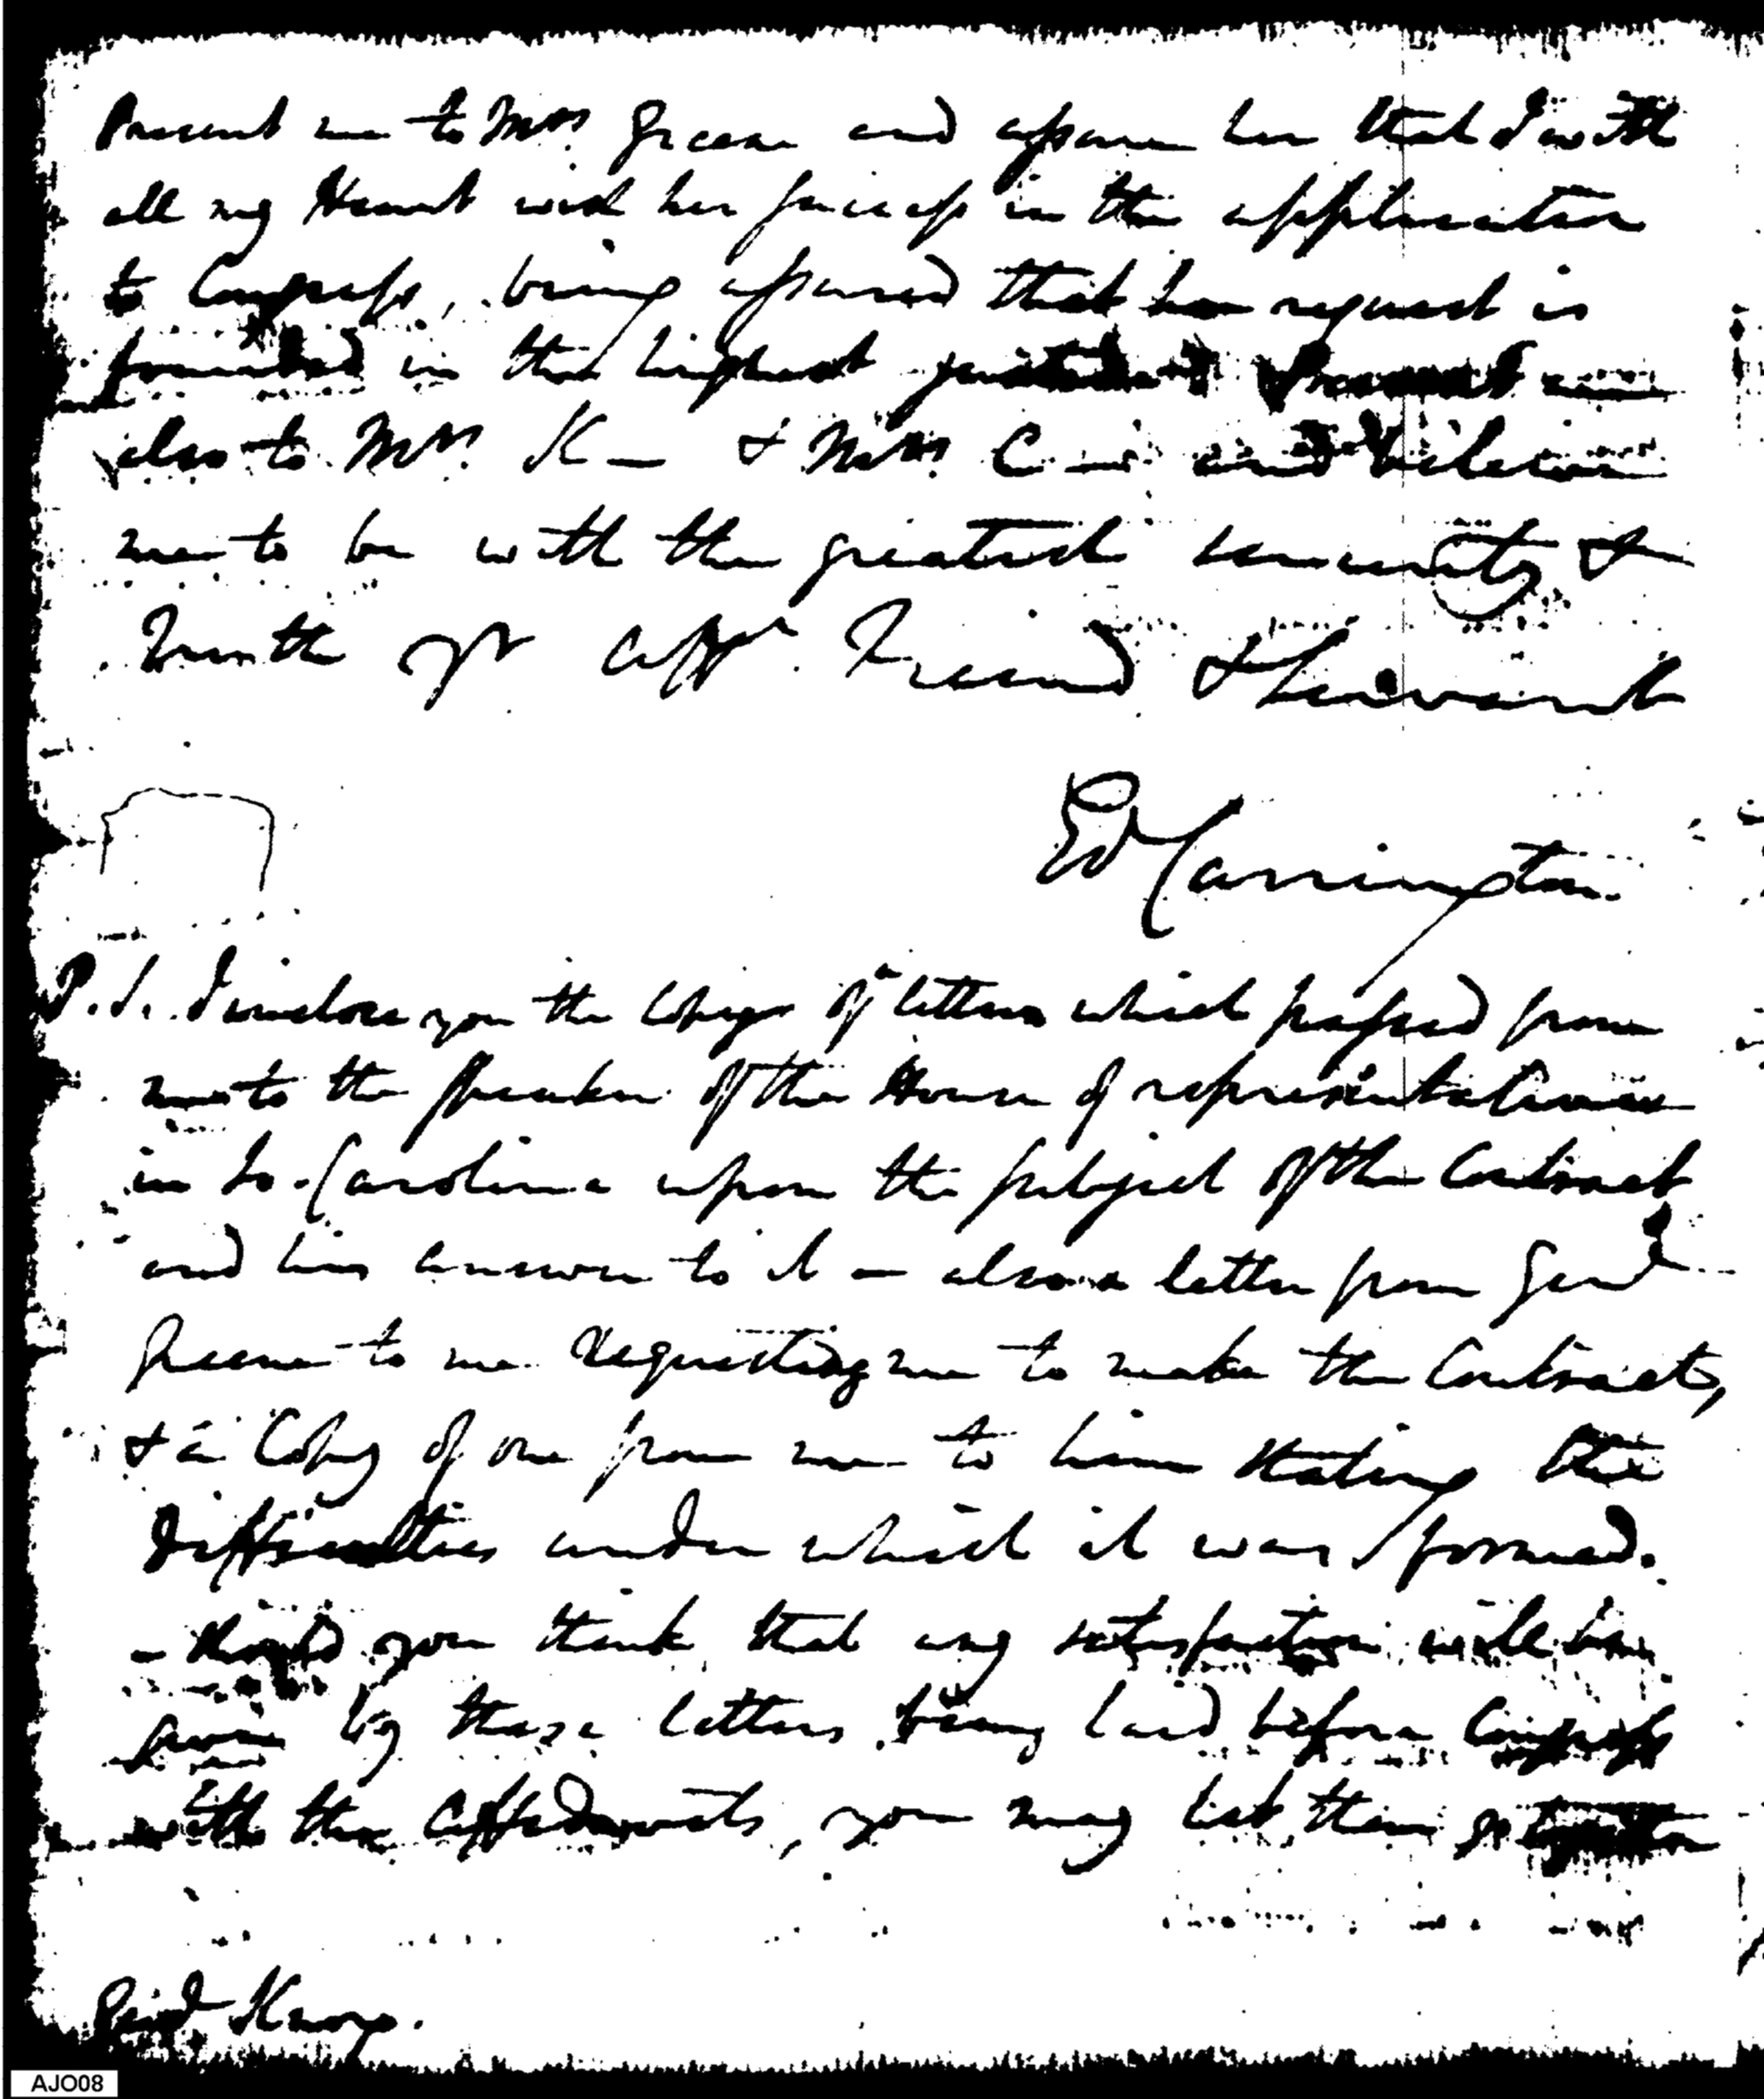 Present me to Mrs. Greene and assure her that I with
all my Heart wish her success in the application
to Congress, being assured that her request is
founded in the highest justice. Present me
also to Mrs. K— & Mrs. C— and believe
me to be with the greatest sincerity &
Truth yr. Afft. Friend & Servant
Ed Carrington
P.S. I inclose you the Copy of a letter which passed from
me to the Speaker of the House of representatives
in So. Carolina upon the subject of the Contract
and his answer to it — also a letter from Genl
Greene to me requesting me to make the Contract,
& a Copy of one from me to him stating the
difficulties under which it was formed.
– should you think that any satisfaction will be
given by these letters being laid before Congress
with the Affidavits, you may let them go together
Genl Knox.
AJO08